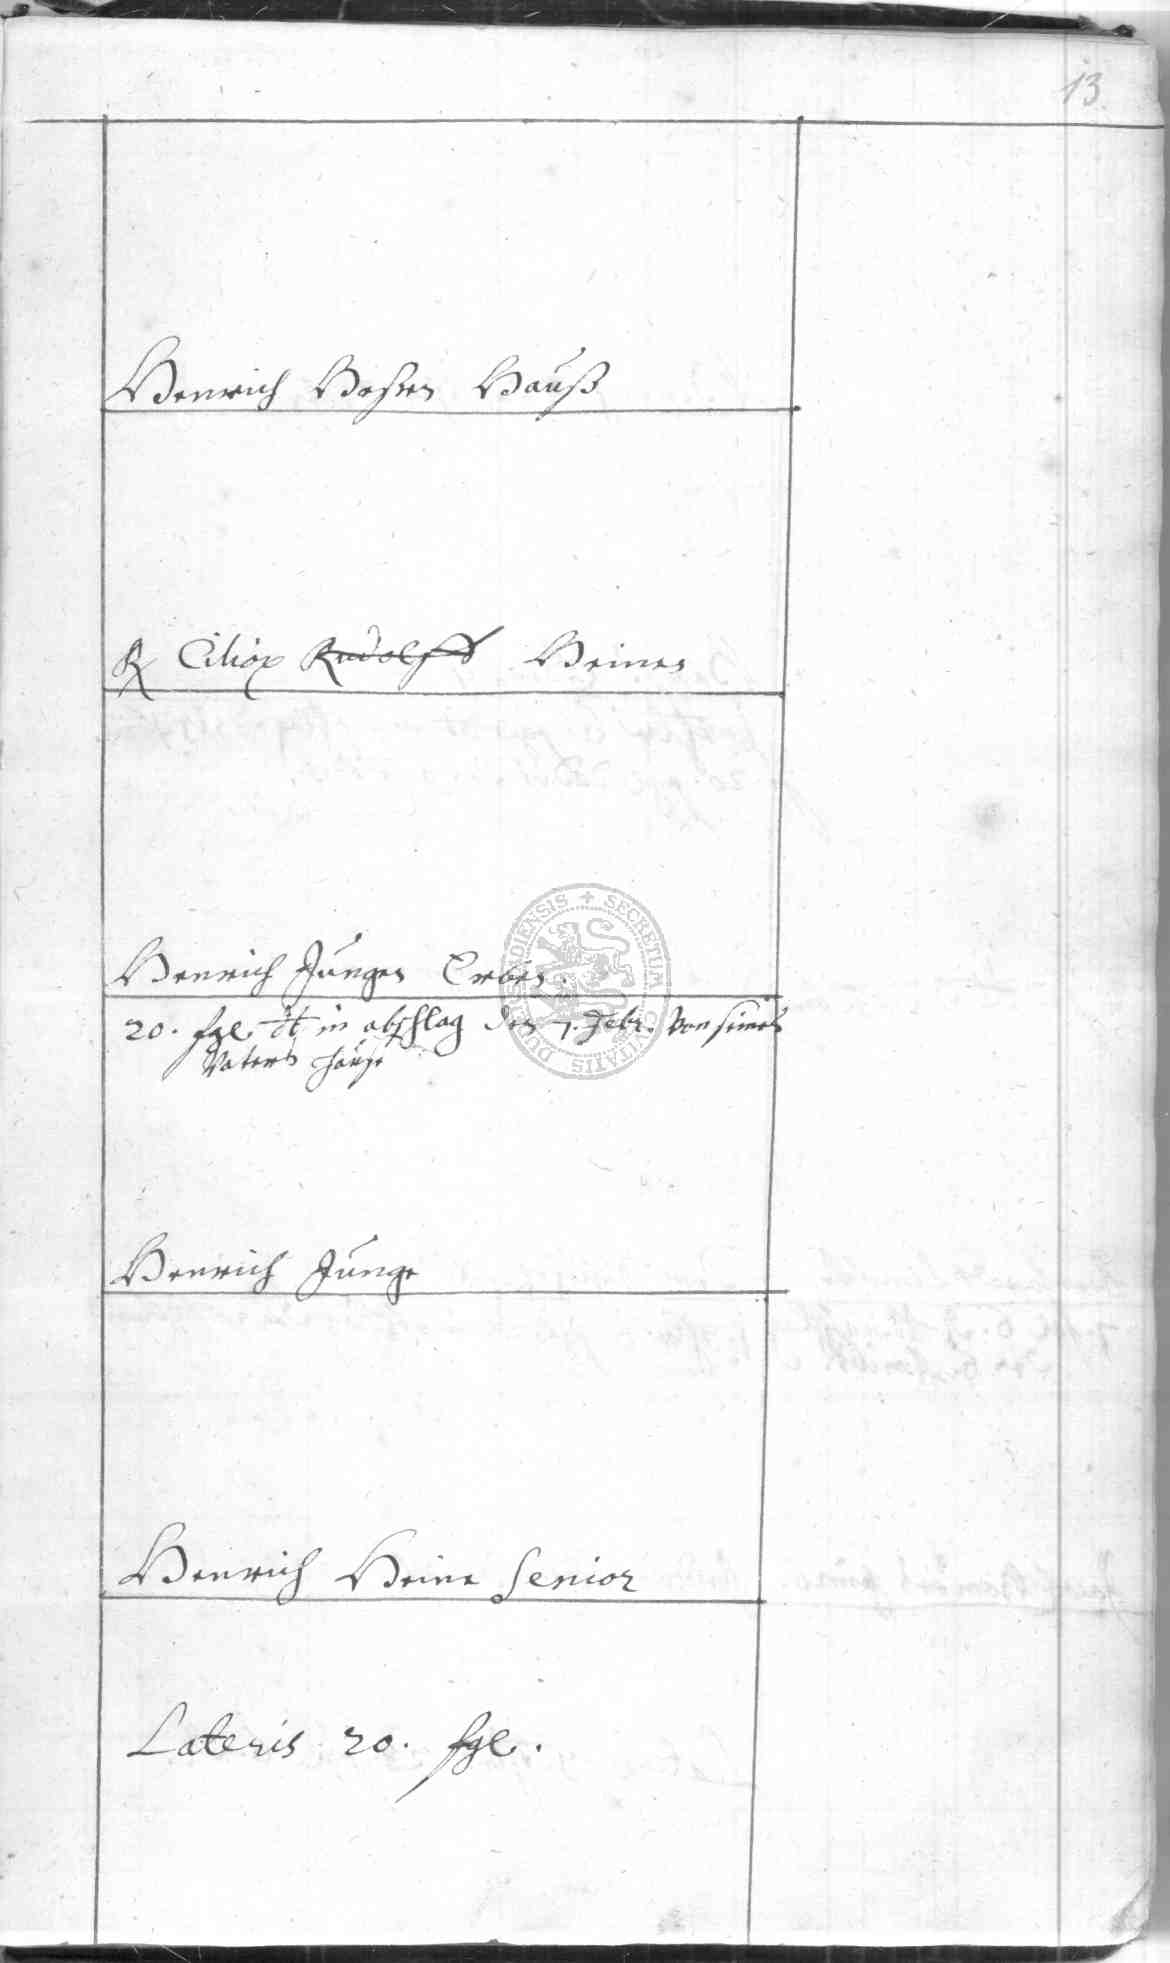 13
Henrich Bosßen Hauß
Ciliax Rudolffs Heinen
Henrich Jungen Erben.
20. fgl. dt in abschlag den 7. Febr. Von seines
Vaters Hause
Henrich Junge
Henrich Heine Senior
Lateris 20. fgl.
SECRETUM CIVITATIS DUDERSTADIENSIS